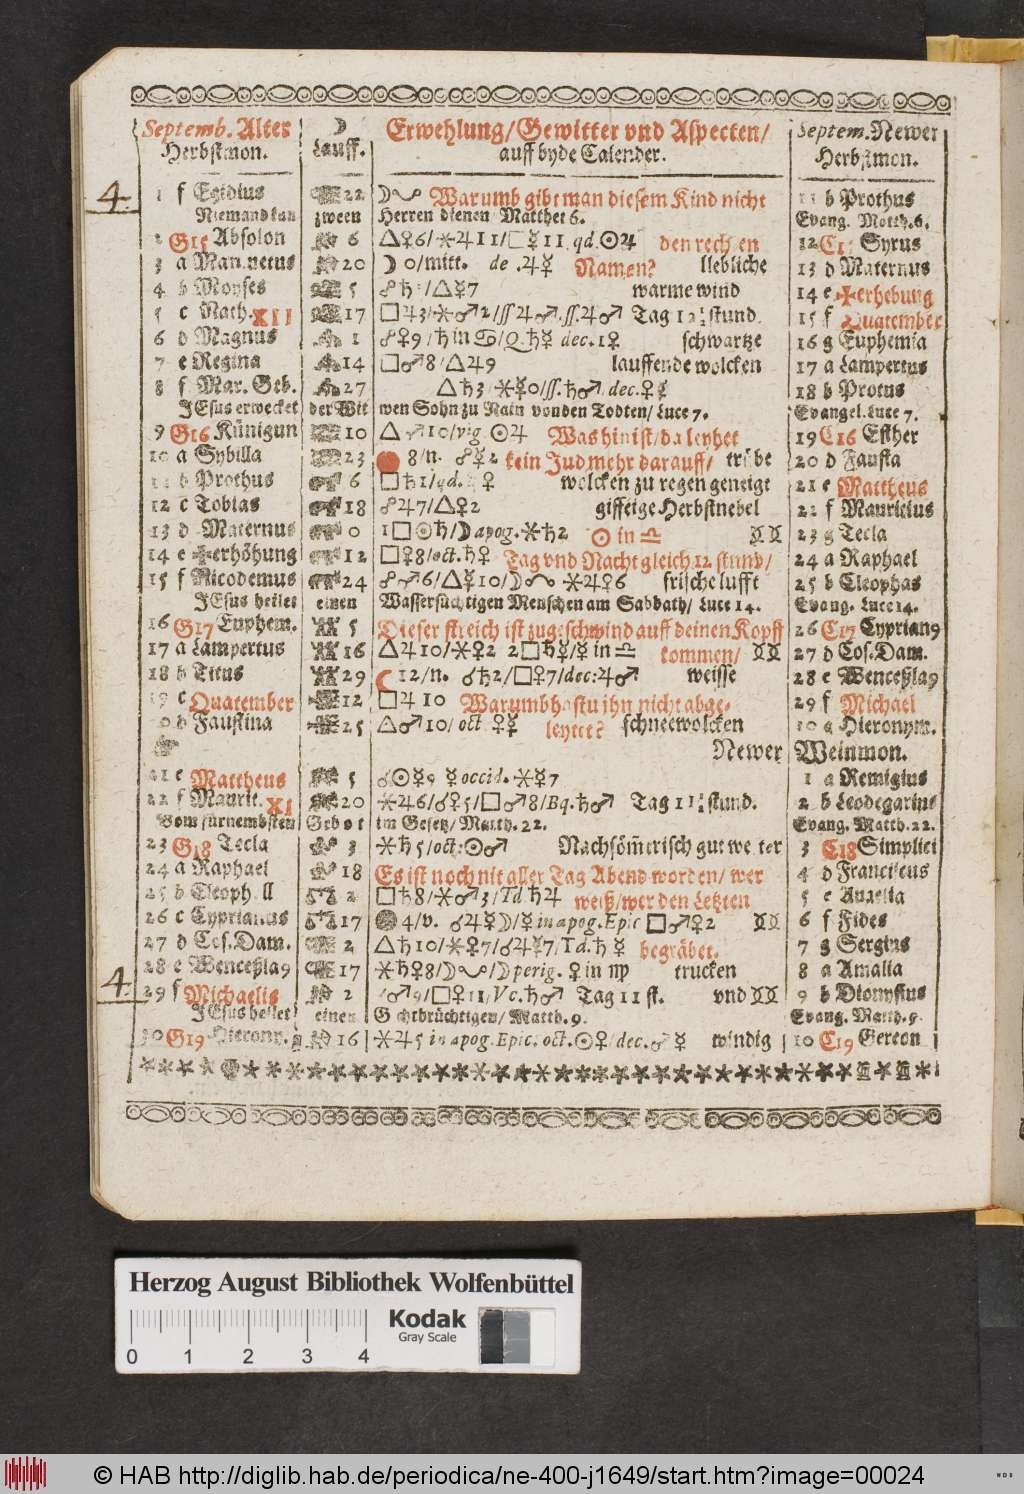 Septemb. Alter ☽ Erwehlung/Gewitter vnd Aspecten/ Septem. Newer
Herbstmon. Lauff. auff byde Calender. Herbstmon.
4
1 f Egidius 22 Warumb gibt man diesem Kind nicht 11 b Prothus
Niemand kan zween Herren dienen Matthei 6. Evang. Matth. 6.
2 G15 Absolon 6 △♀6/⚹♃11/□☿11. qd. ☉♃ den rechten 12 Syrus
3 a Manuetus 20 ☽0/mitt. de .♃☿ Namen? liebliche 13 d Maternus
4 b Moyses 5 warme wind 14 e ✠erhebung
5 c Nath. XII 17 Tag 12½ stund. 15 f Quatember
6 d Magnus 1 schwartze 16 g Euphemia
7 e Regina 14 □♂8/△♃9 lauffende wolcken 17 a Lampertus
8 f Mar. Geb. 27 18 b Protus
JEsus erwecket der Wit wen Sohn zu Nain von den Todten/ Luce 7. Evangel. Luce 7.
9 G16 Künigun 10 Was hin ist/da leyhet 19 C16 Esther
10 a Sybilla 23 8/n. ☍☿2 kein Jud mehr darauff/ trübe 20 d Fausta
11 b Prothus 6 wolcken zu regen geneigt 21 e Mattheus
12 c Tobias 18 ☍♃7/△♀2 gifftige Herbstnebel 22 f Mauricius
13 d Maternus 0 1□☉♄/☽apog.⚹♄2 ☉ in ♎ 23 g Tecla
14 e ✠erhöhung 12 □♀8/oct.♄♀ Tag vnd Nacht gleich 12 stund/ 24 a Raphael
15 f Nicodemus 24 frische lufft 25 b Cleophas
JEsus heilet einen Wassersüchtigen Menschen am Sabbath/ Luce 14. Evang. Luce 14.
16 G17 Euphem. 5 Dieser streich ist zugeschwind auff deinen Kopff 26 C17 Cyprian9
17 a Lampertus 16 △♃10/⚹♀2 2□♄☿/☿ in ♎ kommen/ 27 d Cos. Dam.
18 b Titus 29 ☾12/n. ☌♄2/□♀7/dec:♃♂ weisse 28 e Wenceßla9
19 c Quatember 12 □♃10 Warumb hastu jhn nicht abge- 29 f Michael
20 d Faustina 25 △♂10/oct ♀☿ leytet? schneewolcken 30 g Hieronym.
Newer Weinmon.
21 e Mattheus 5 ☌☉☿9 ☿occid. ⚹☿7 1 a Remigius
22 f Maurit. XI 20 ⚹♃6/☌♀5/□♂8/Bq.♄♂ Tag 11½ stund. 2 b Leodegarius
Vom fürnembsten Gebot im Gesetz/ Matth. 22. Evang. Matth. 22.
23 G18 Tecla 3 ⚹♄5/oct:☉♂ Nachsömerisch gut wetter 3 C18 Simplici
24 a Raphael 18 Es ist noch nit aller Tag Abend worden/ wer 4 d Franciscus
25 b Cleoph. 2 □♄8/⚹♂3/Td ♄♃ weiß/wer den Letzten 5 e Aurelia
26 c Cyprianus 17 4/v. ☌♃☿☽/☿ in apog. Epic □♂♀2 6 f Fides
27 d Cos. Dam. 2 △♄10/⚹♀7/☌♃☿7/Td. ♄☿ begräbet. 7 g Sergius
28 e Wenceßla9 17 perig. ♀ in ♍ trucken 8 a Amalia
4
29 f Michaelis 2 Vc. ♄♂ Tag 11 st. vnd 9 b Dionysius
JEsus heilet einen Gichtbrüchtigen/ Matth. 9. Evang. Matth. 9.
30 G19 Hierony. 16 ⚹♃5 in apog. Epic. oct. ☉♀/dec.♂☿ windig 10 C19 Gereon
Herzog August Bibliothek Wolfenbüttel
Kodak
Gray Scale
0 1 2 3 4
© HAB http://diglib.hab.de/periodica/ne-400-j1649/start.htm?image=00024